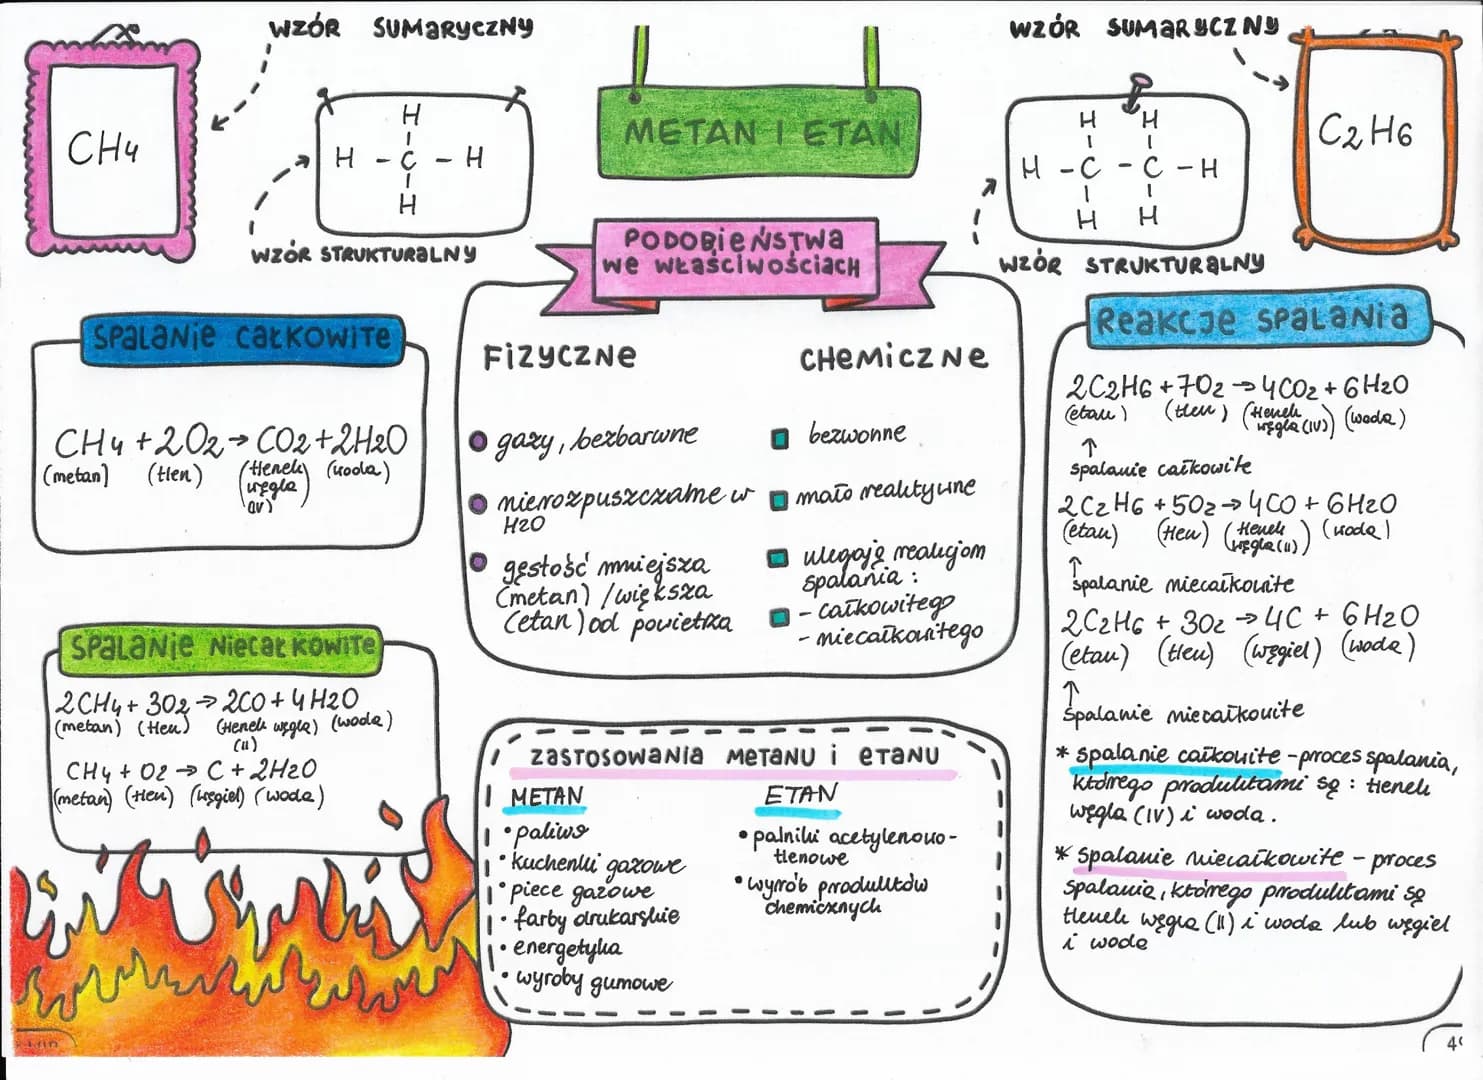 WZÓR SUMARYCZNY
CH4
H
H - C - H
H
WZÓR STRUKTURALNY
METAN I ETAN
WZÓR SUMARYCZNY
C2H6
H H
H - C - C - H
H H
WZÓR STRUKTURALNY
SPALANIE CAŁKOWITE
CH4 + 2O2 → CO2 + 2H2O
(metan) (tlen) (tlenek (woda)
węgla
(IV)
SPALANIE NIECAŁKOWITE
2CH4 + 3O2 → 2CO + 4H2O
(metan) (tlen) (tlenek węgla) (woda)
(II)
CH4 + O2 → C + 2H2O
(metan) (tlen) (węgiel) (woda)
PODOBIEŃSTWA
WE WŁAŚCIWOŚCIACH
FIZYCZNE
gazy, bezbarwne
nierozpuszczalne w
H2O
gęstość mniejsza
(metan) / większa
(etan) od powietrza
CHEMICZNE
bezwonne
mało reaktywne
ulegają reakcjom
spalania :
- całkowitego
- niecałkowitego
ZASTOSOWANIA METANU i ETANU
METAN
• paliwo
• kuchenki gazowe
• piece gazowe
• farby drukarskie
• energetyka
• wyroby gumowe
ETAN
• palniki acetylenowo-
tlenowe
• wyrób produktów
chemicznych
REAKCJE SPALANIA
2C2H6 + 7O2 → 4CO2 + 6H2O
(etan) (tlen) (tlenek (woda)
węgla (IV))
↑
spalanie całkowite
2C2H6 + 5O2 → 4CO + 6H2O
(etan) (tlen) (tlenek (woda)
węgla (II))
↑
spalanie niecałkowite
2C2H6 + 3O2 → 4C + 6H2O
(etan) (tlen) (węgiel) (woda)
↑
spalanie niecałkowite
* spalanie całkowite - proces spalania,
którego produktami są : tlenek
węgla (IV) i woda.
* spalanie niecałkowite - proces
spalania, którego produktami są
tlenek węgla (II) i woda lub węgiel
i woda